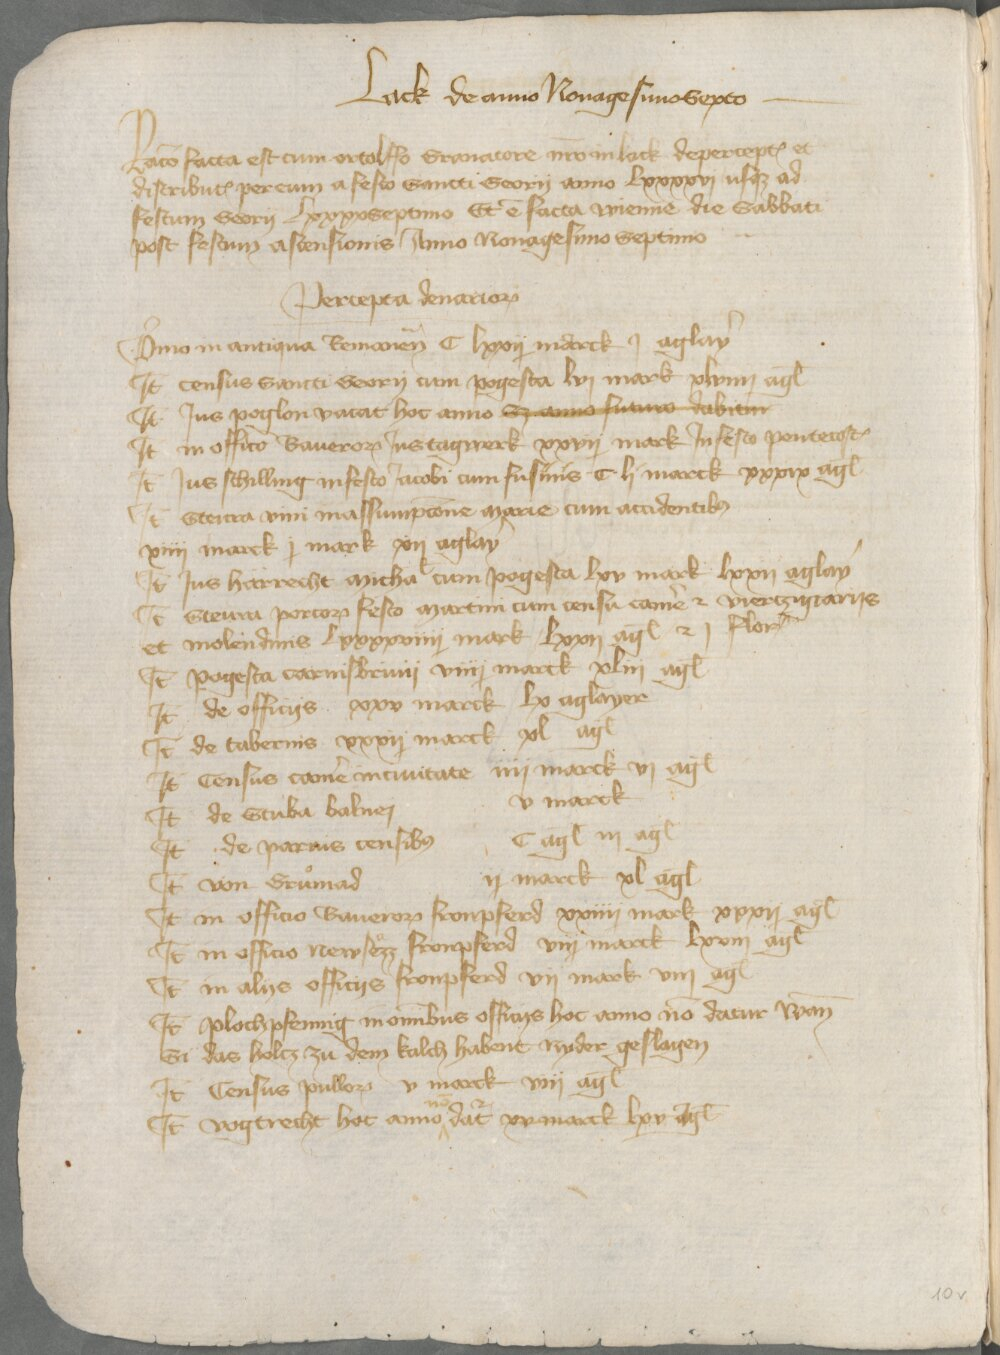 Lack de anno Nonagesimo Sexto
Raco facta est cum ortolffo Granatore nro in lack de percept et
distribut per eum a festo Sancti Georij anno Lxxxxvi usqz ad
festum Georij Lxxxx Septimo Et e facta wienne die Sabbati
post festum ascensionis Anno Nonagesimo Septimo
Percepta denarior
Primo in antiqua Remanen C lxxij march j aglay
It census Sancti Georij cum pogesta lvj mark xlviiij agl
It Jus poglon vacat hoc anno Sz anno futuro dabitur
It in officio Bauaror Jus tagwerk xxvij mark In festo pentecost
It Jus schilling in festo Jacobi cum fusinis C lj marck xxxix agl
It Steura vini in assumpcone Marie cum accidentibus
xiiij marck j mark xij aglay
It Jus harrecht Michal cum pogesta lxv mark lxxij aglay
It Steura porcor festo Martini cum censu came & viertzigarijs
et molendinis Lxxxxviiij mark lxxij agl & j flor
It pogesta carnisbrivij viiij marck xliij agl
It de officijs xxv marck lx aglayer
It de tabernis xxxij marck xl agl
It Census came in ciuitate iiij marck vj agl
It de Stuba balnej v marck
It de paruis censibus C agl iij agl
It von Grumad ij marck xl agl
It in officio Bauaror fronpferd xxiiij mark xxxij agl
It in officio Newsezz fronpferd viij marck lxxiij agl
It in alijs officijs fronpferd vij mark viij agl
It plochpfennig in omnibus officijs hoc anno no datur Wan
Si das holcz zu dem kalch habent nyder geslagen
It Census pullor v marck viij agl
It vogtrecht hoc anno no dat xv marck lxv agl
10v